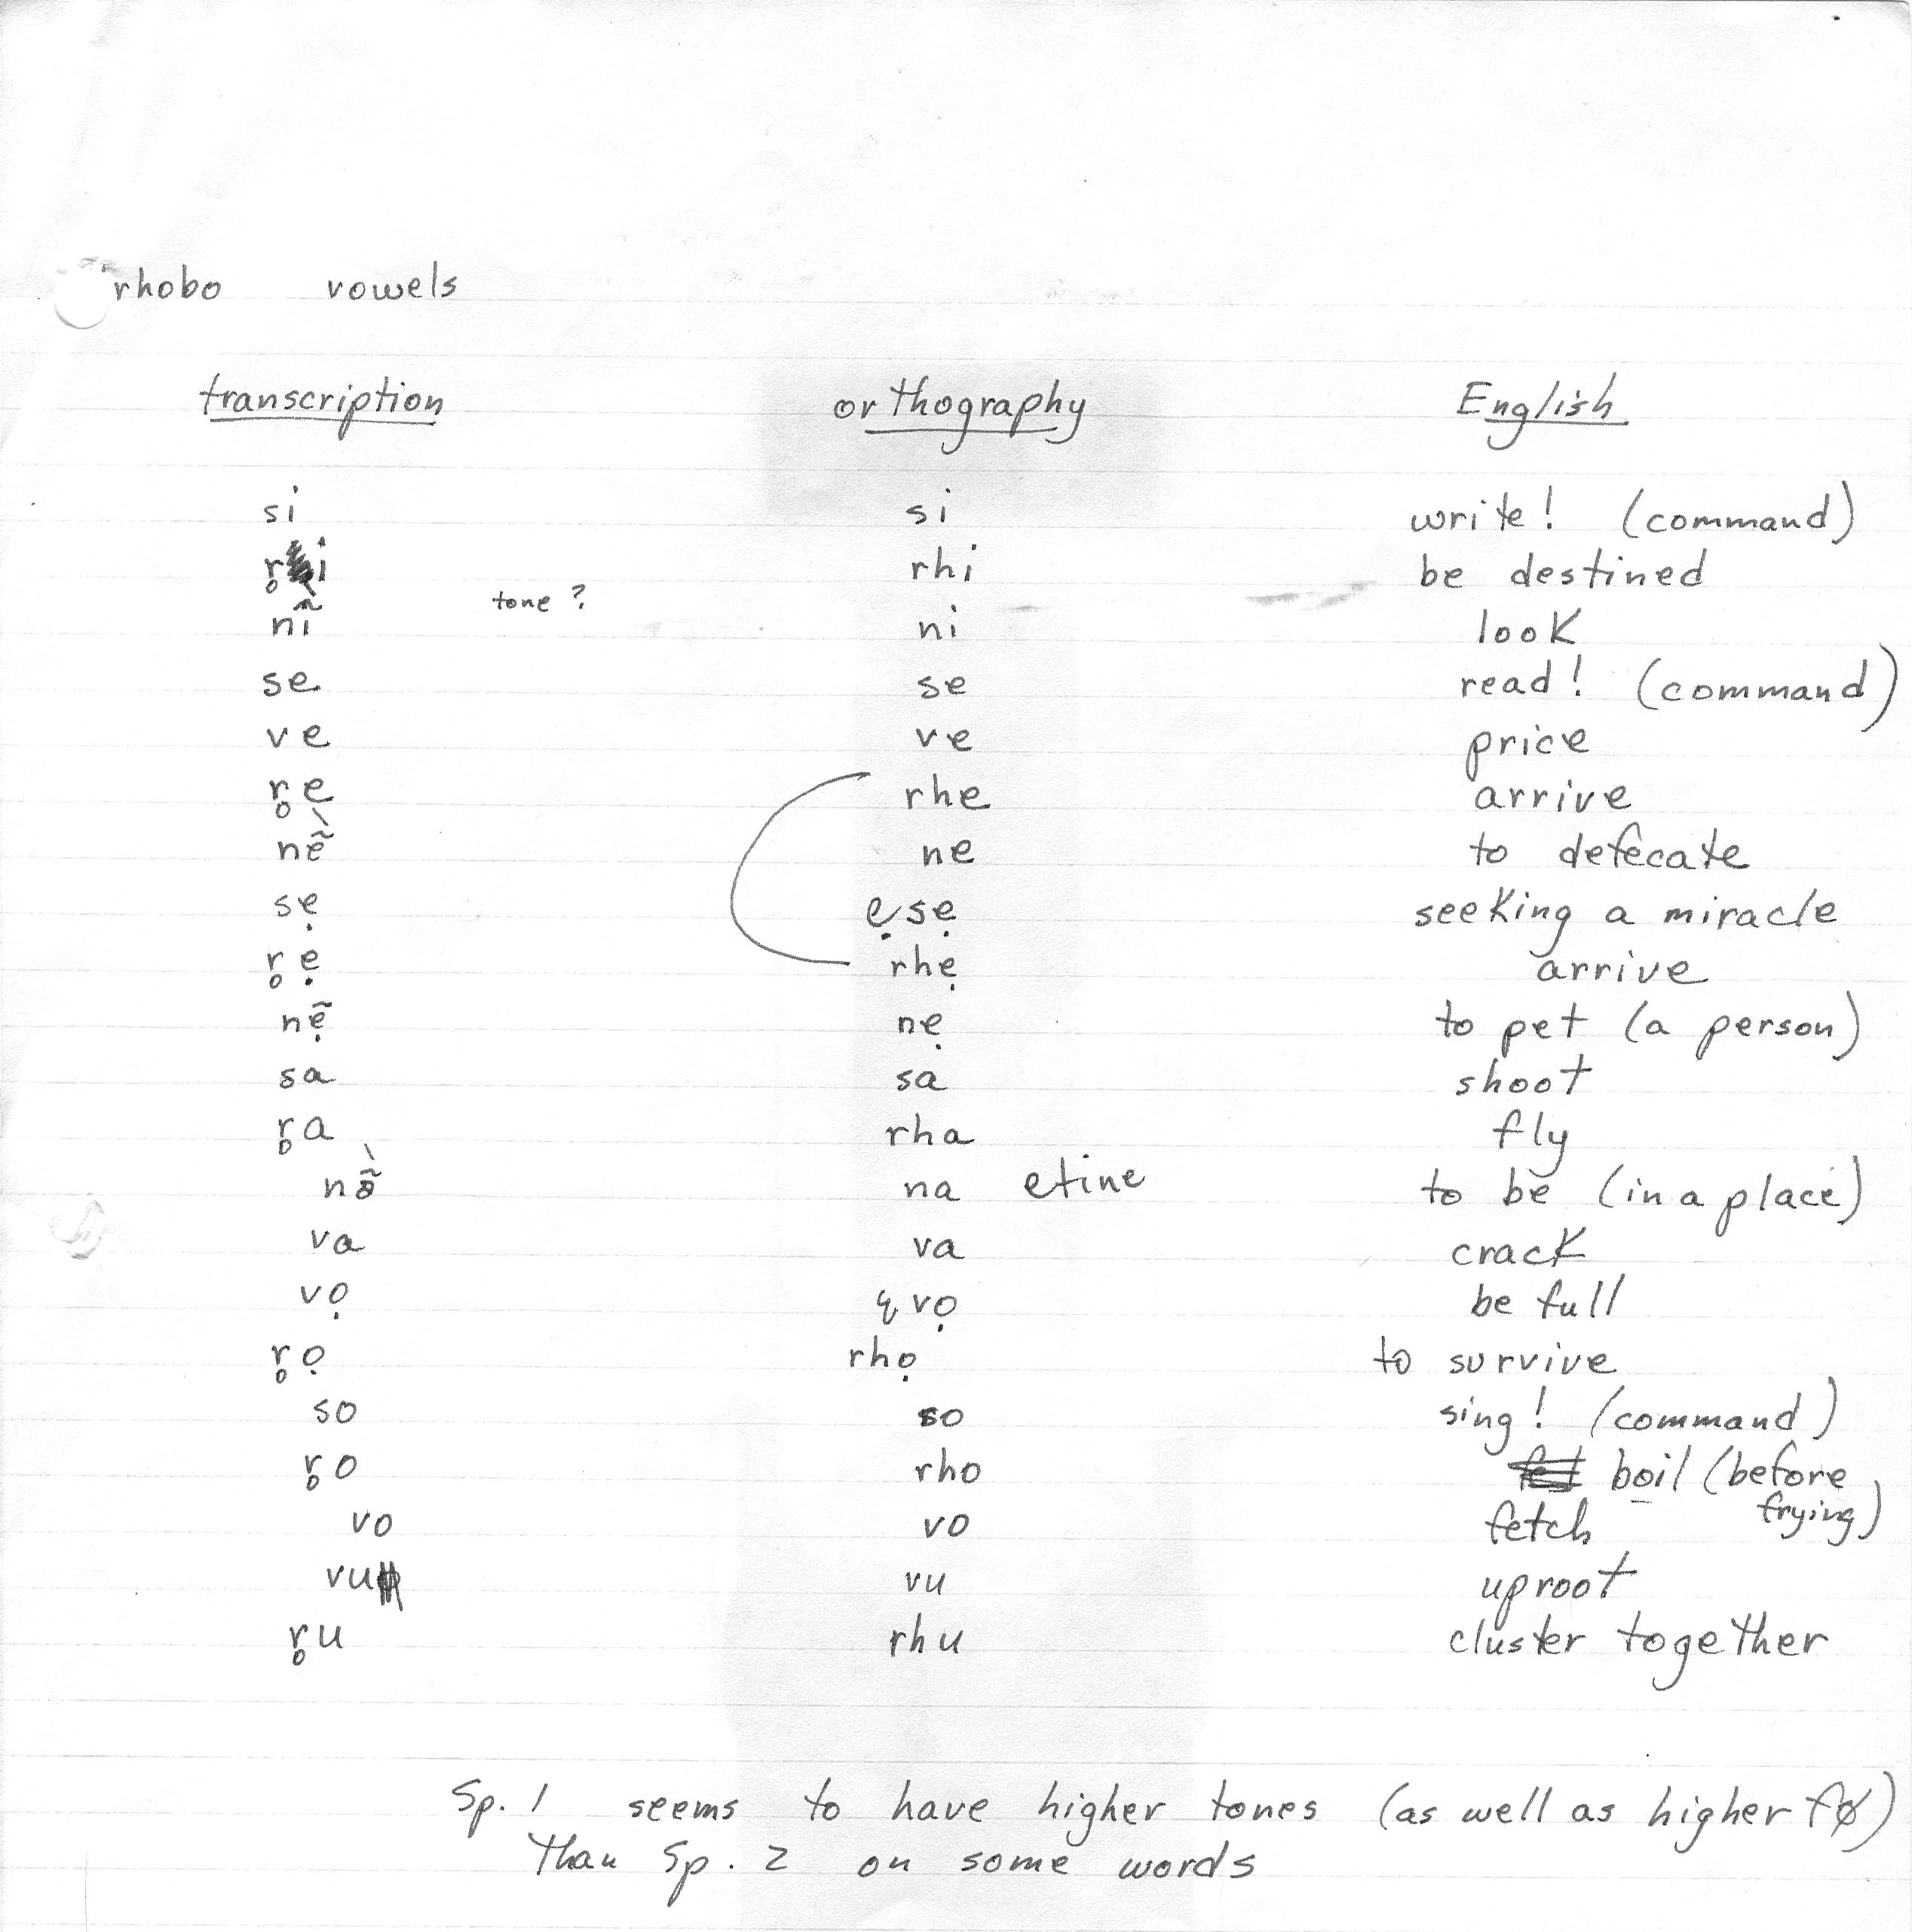 rhobo vowels
transcription orthography English
si si write! (command)
r̥i rhi be destined
nĩ tone? ni look
se se read! (command)
ve ve price
r̥e rhe arrive
nẽ̀ ne to defecate
sẹ ẹsẹ seeking a miracle
r̥ẹ rhẹ arrive
nẹ̃ nẹ to pet (a person)
sa sa shoot
r̥a rha fly
nã̀ na etine to be (in a place)
va va crack
vọ vọ be full
r̥ọ rhọ to survive
so so sing! (command)
r̥o rho boil (before frying)
vo vo fetch
vu vu uproot
r̥u rhu cluster together
Sp. 1 seems to have higher tones (as well as higher fØ)
than Sp. 2 on some words